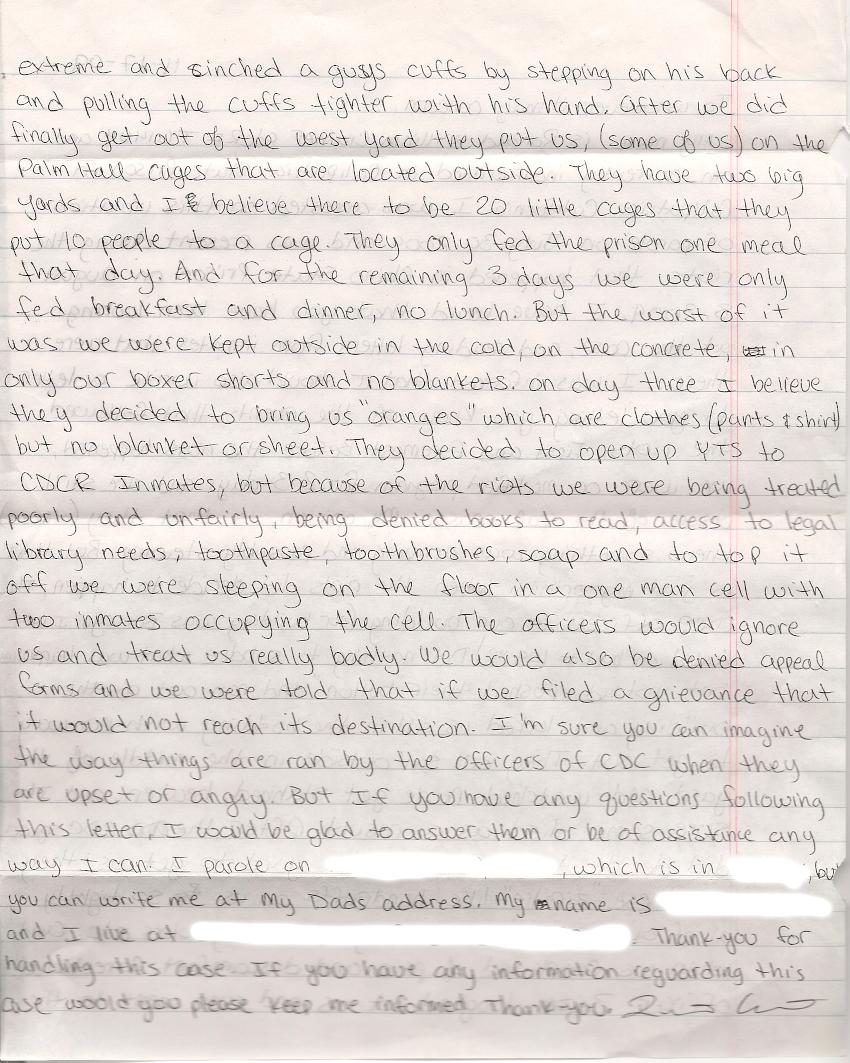 extreme and sinched a guys cuffs by stepping on his back
and pulling the cuffs tighter with his hand. After we did
finally get out of the west yard they put us, (some of us) on the
Palm Hall cages that are located outside. They have two big
yards and I believe there to be 20 little cages that they
put 10 people to a cage. They only fed the prison one meal
that day. And for the remaining 3 days we were only
fed breakfast and dinner, no lunch. But the worst of it
was we were kept outside in the cold, on the concrete, in
only our boxer shorts and no blankets. on day three I believe
they decided to bring us "oranges" which are clothes (pants & shirt)
but no blanket or sheet. They decided to open up YTS to
CDCR Inmates, but because of the riots we were being treated
poorly and unfairly, being denied books to read, access to legal
library needs, toothpaste, toothbrushes, soap and to top it
off we were sleeping on the floor in a one man cell with
two inmates occupying the cell. The officers would ignore
us and treat us really badly. We would also be denied appeal
forms and we were told that if we filed a grievance that
it would not reach its destination. I'm sure you can imagine
the way things are ran by the officers of CDC when they
are upset or angry. But If you have any questions following
this letter, I would be glad to answer them or be of assistance any
way I can. I parole on , which is in , but
you can write me at My Dads address. My name is
and I live at . Thank-you for
handling this case. If you have any information reguarding this
case would you please keep me informed Thank-you.